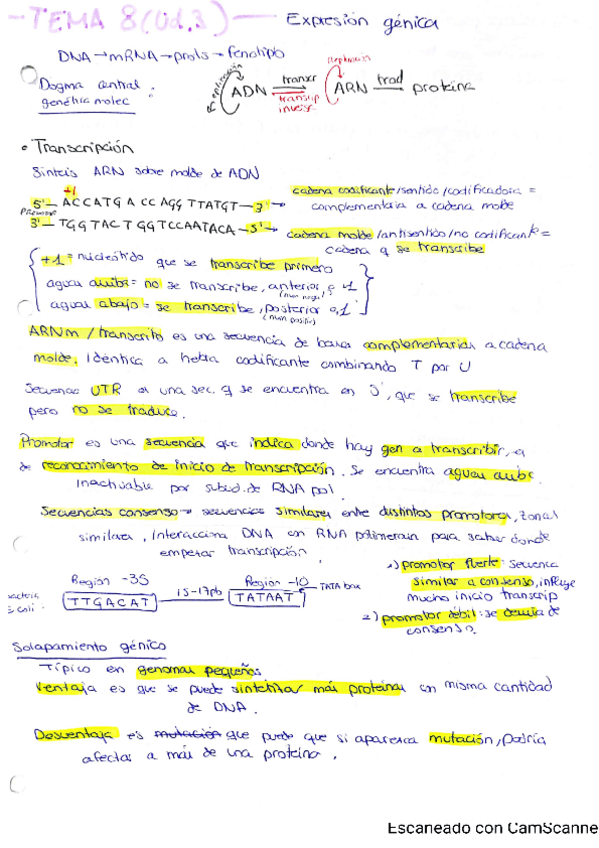 -TEMA 8 (Ud.3)- Expresión génica
DNA → mRNA → prots → fenotipo
Dogma central
genética molec :
Replicación
ADN
transcr
transcrip
inversa
Replicación
ARN trad proteina
• Transcripción
Síntesis ARN sobre molde de ADN
+1
5'- ACCATG A CC AGG TTATGT - 3' → cadena codificante/sentido/codificadora =
complementaria a cadena molde
Promotor
3'- TGG TAC T GG TCCAATACA - 5' → cadena molde/antisentido/no codificante =
cadena q se transcribe
+1 = nucleótido que se transcribe primero
aguas arriba = no se transcribe, anterior a +1
(num negat)
aguas abajo = se transcribe, posterior a 1
(num positiv)
ARNm / transcrito es una secuencia de bases complementarias a cadena
molde. Identica a hebra codificante combinando T por U
Secuencia UTR es una sec. q se encuentra en 5', que se transcribe
pero no se traduce.
Promotor es una secuencia que indica donde hay gen a transcribir, es
de reconocimiento de inicio de transcripción. Se encuentra aguas arriba.
por subud. de RNA pol.
Secuencias consenso → secuencias similares entre distintos promotores, zonas
similares, interacciona DNA con RNA polimerasa para saber donde
empezar transcripción.
1) promotor fuerte: secuencia
similar a consenso, influye
mucho inicio transcrip
2) promotor débil: se desvía de
consenso.
Región -35
Región -10
TATA box
E. coli :
TTGACAT
15-17pb
TATAAT
Solapamiento génico
Típico en genomas pequeños
Ventaja es que se puede sintetizar más proteínas con misma cantidad
de DNA.
Desventaja es mutación que puede que si aparezca mutación, podría
afectar a más de una proteína.
Escaneado con CamScanne